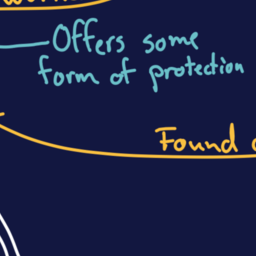 Offers some
form of protection
Found